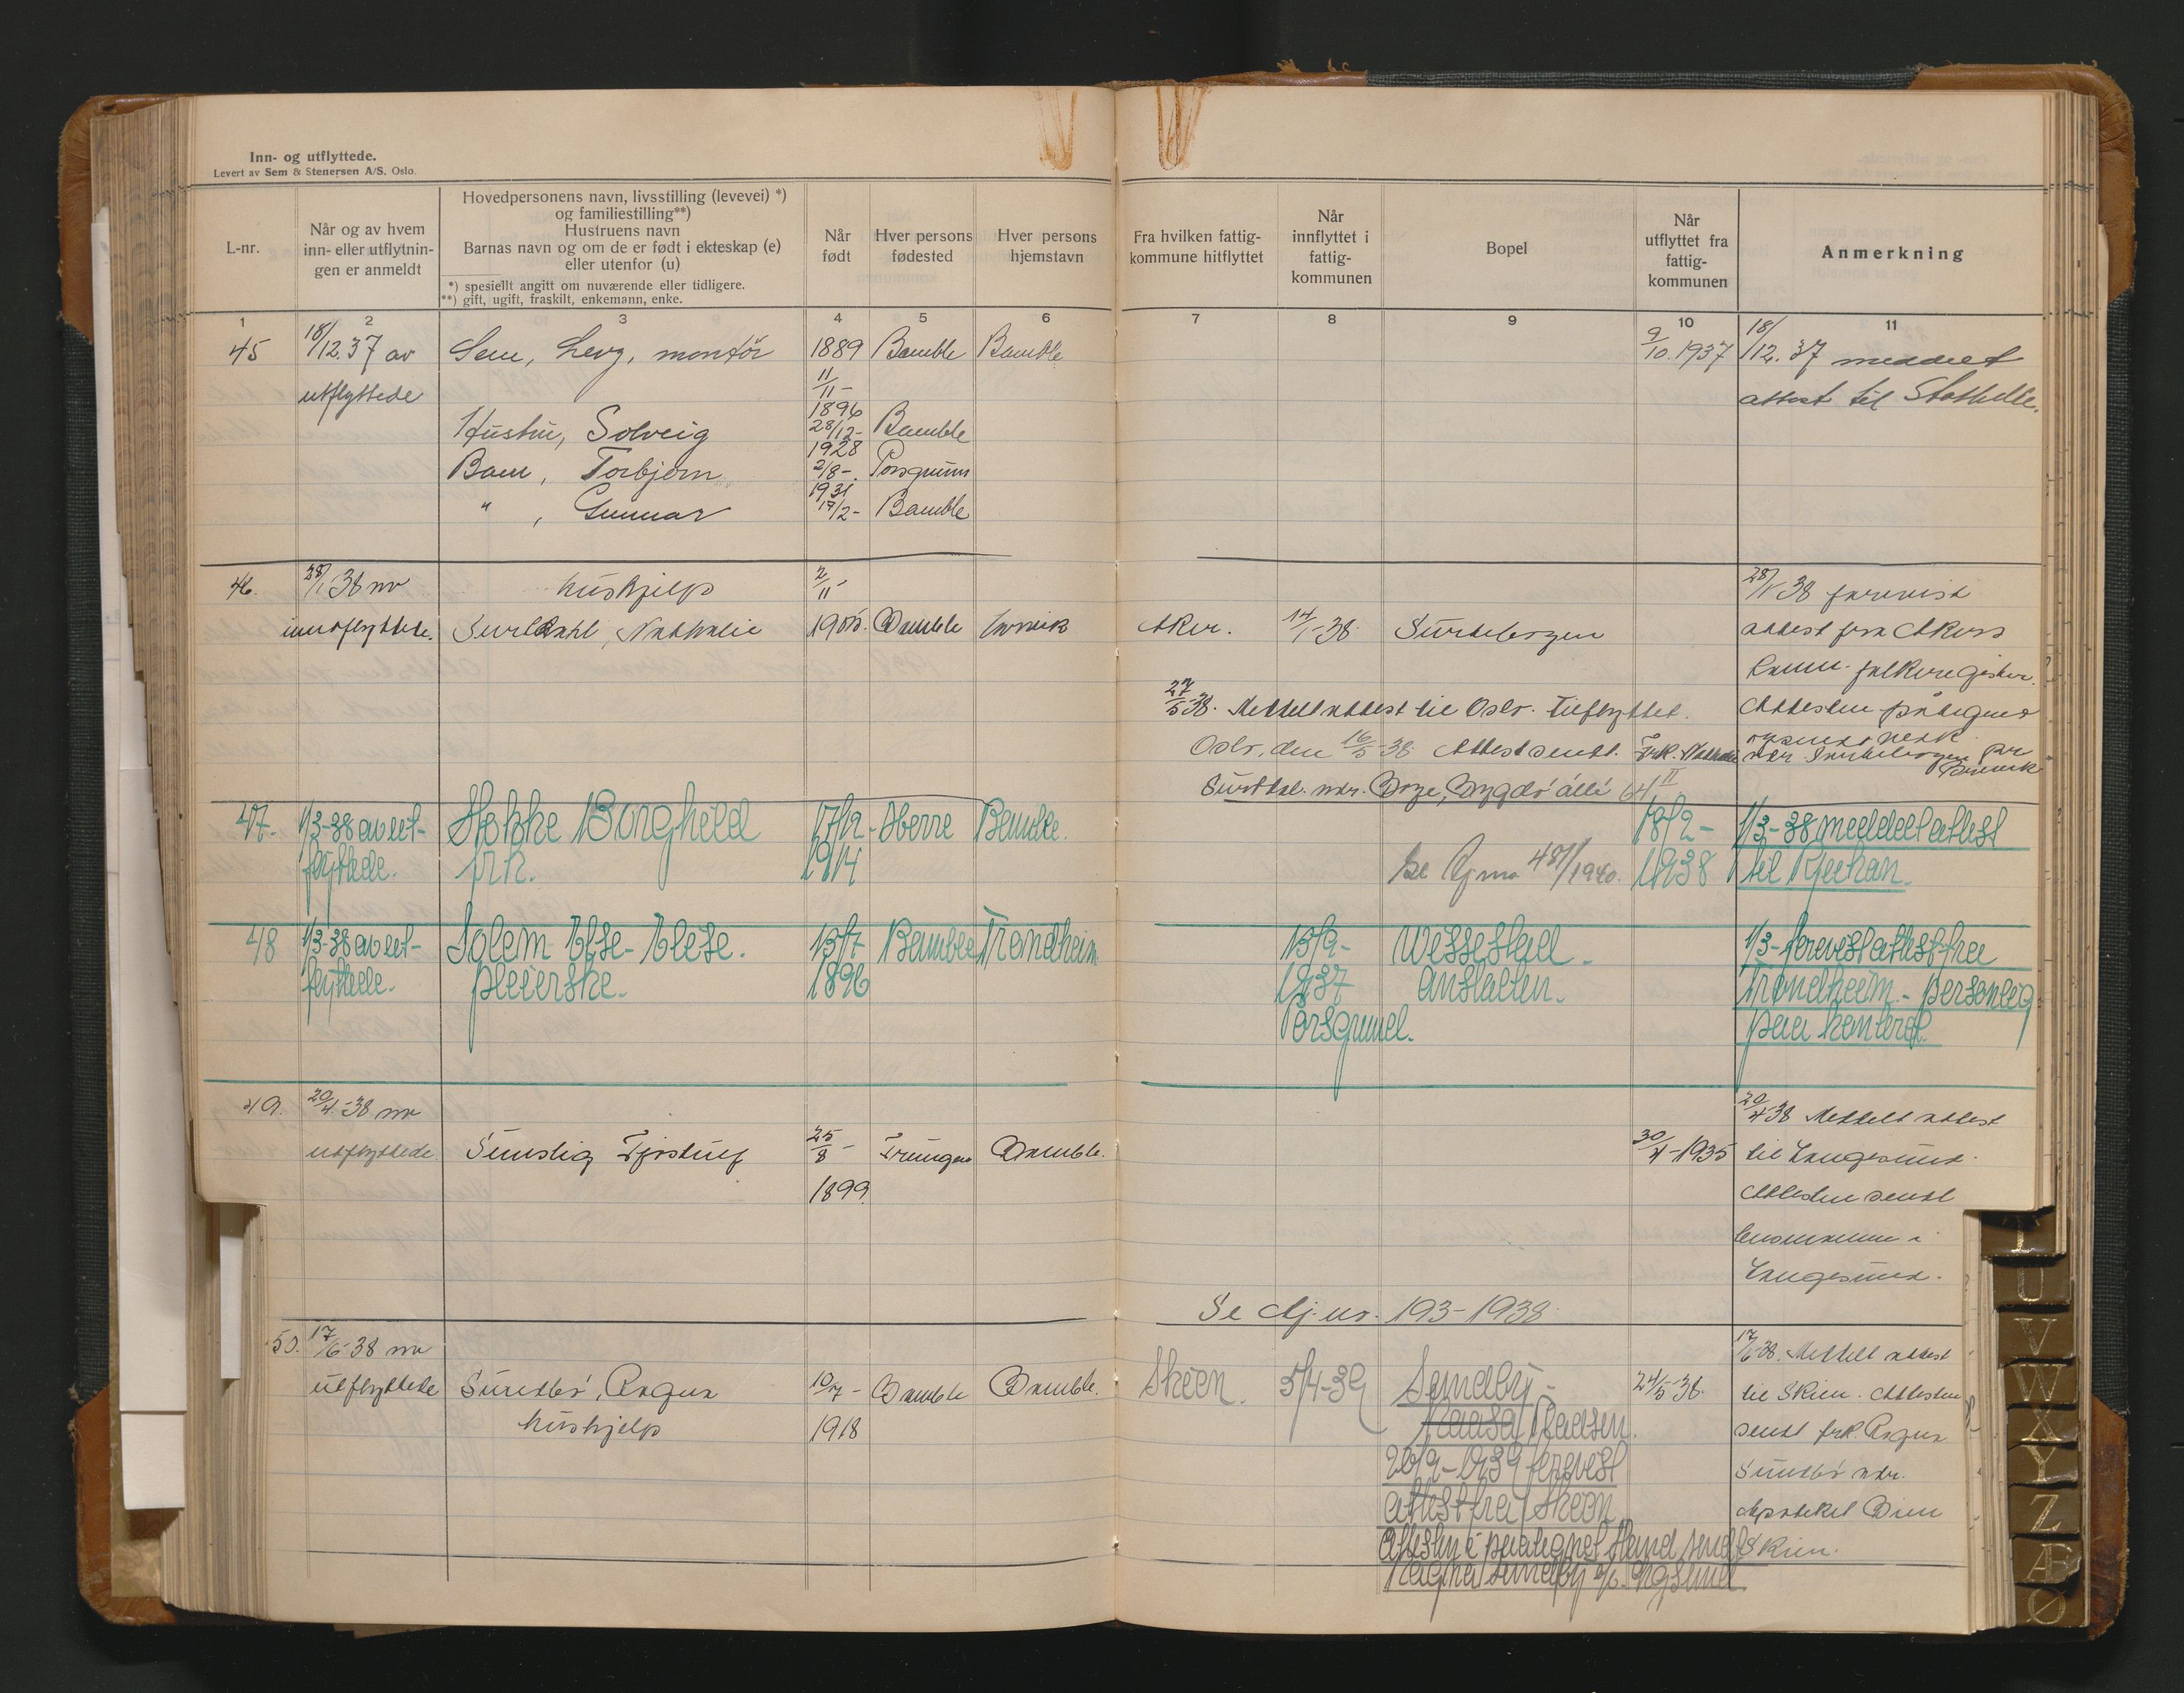 Inn- og utflyttede.
Levert av Sem & Stenersen A/S. Oslo.
L-nr.
Når og av hvem
inn- eller utflytnin-
gen er anmeldt
Hovedpersonens navn, livsstilling (levevei) *)
og familiestilling**)
Hustruens navn
Barnas navn og om de er født i ekteskap (e)
eller utenfor (u)
*) spesielt angitt om nuværende eller tidligere.
**) gift, ugift, fraskilt, enkemann, enke.
Når
født
Hver persons
fødested
Hver persons
hjemstavn
Fra hvilken fattig-
kommune hitflyttet
Når
innflyttet i
fattig-
kommunen
Bopel
Når
utflyttet fra
fattig-
kommunen
Anmerkning
1 2 3 4 5 6 7 8 9 10 11
45 18/12.37 av Sem, montør 1889 Bamble Bamble 9/10.1937 18/12.37 meddelt
utflyttede 11/11- attest til Stathelle.
Hustru, Solveig 1896 28/12- Bamble
Barn, Torbjørn 1928 2/8- Porsgrunn
" , Gunnar 1931 17/2- Bamble
46. 28/1 38 av hushjelp 2/11- 28/1 38 forevist
innflyttede. Nathalie Bamble Aker. 14/1-38. Surtebogen attest fra Akers
folkeregister.
27/5-38. Meddelt attest til Oslo. Tilflyttet Attesten påtegnet
Oslo, den 16/5-38. Attest sendt. Frk. Nathalie
Bygdø allé 64 II
47. 1/3-38 av ut- Stokke Borghild 17/12- Herre Bamble. 18/2- 1/3-38 meddelt attest
flyttede. frk. 1914 Se Aj.nr 481/1940. 1938 til Rjukan.
48 1/3-38 av ut- Solem Else-Elise. 13/7- Bamble Trondheim 15/9- Wessestad 1/3-forevist attest fra
flyttede. pleierske. 1896 1937 anstalten. Trondheim.- personlig
Porsgrund. paa kontoret.
49. 20/4-38 av 20/4-38 Meddelt attest
utflyttede 25/8- Bamble. 30/4-1935 til Langesund.
1899. Attesten sendt
lensmannen i
Langesund.
Se Aj.nr. 193-1938.
50. 17/6-38 av 17/6-38. Meddelt attest
utflyttede Sundbø, Ragna 10/7- Bamble Bamble. Skien. 5/4-39 Sundby- 24/5-38. til Skien. Attesten
hushjelp 1918 sendt frk. Ragna
26/9-1939 forevist Sundbø adr.
attest fra Skien Apoteket
Attesten i paategnet stand sendt Skien.
Ragna Sundby
T
U
V
W
X
Y
Z
Æ
Ø